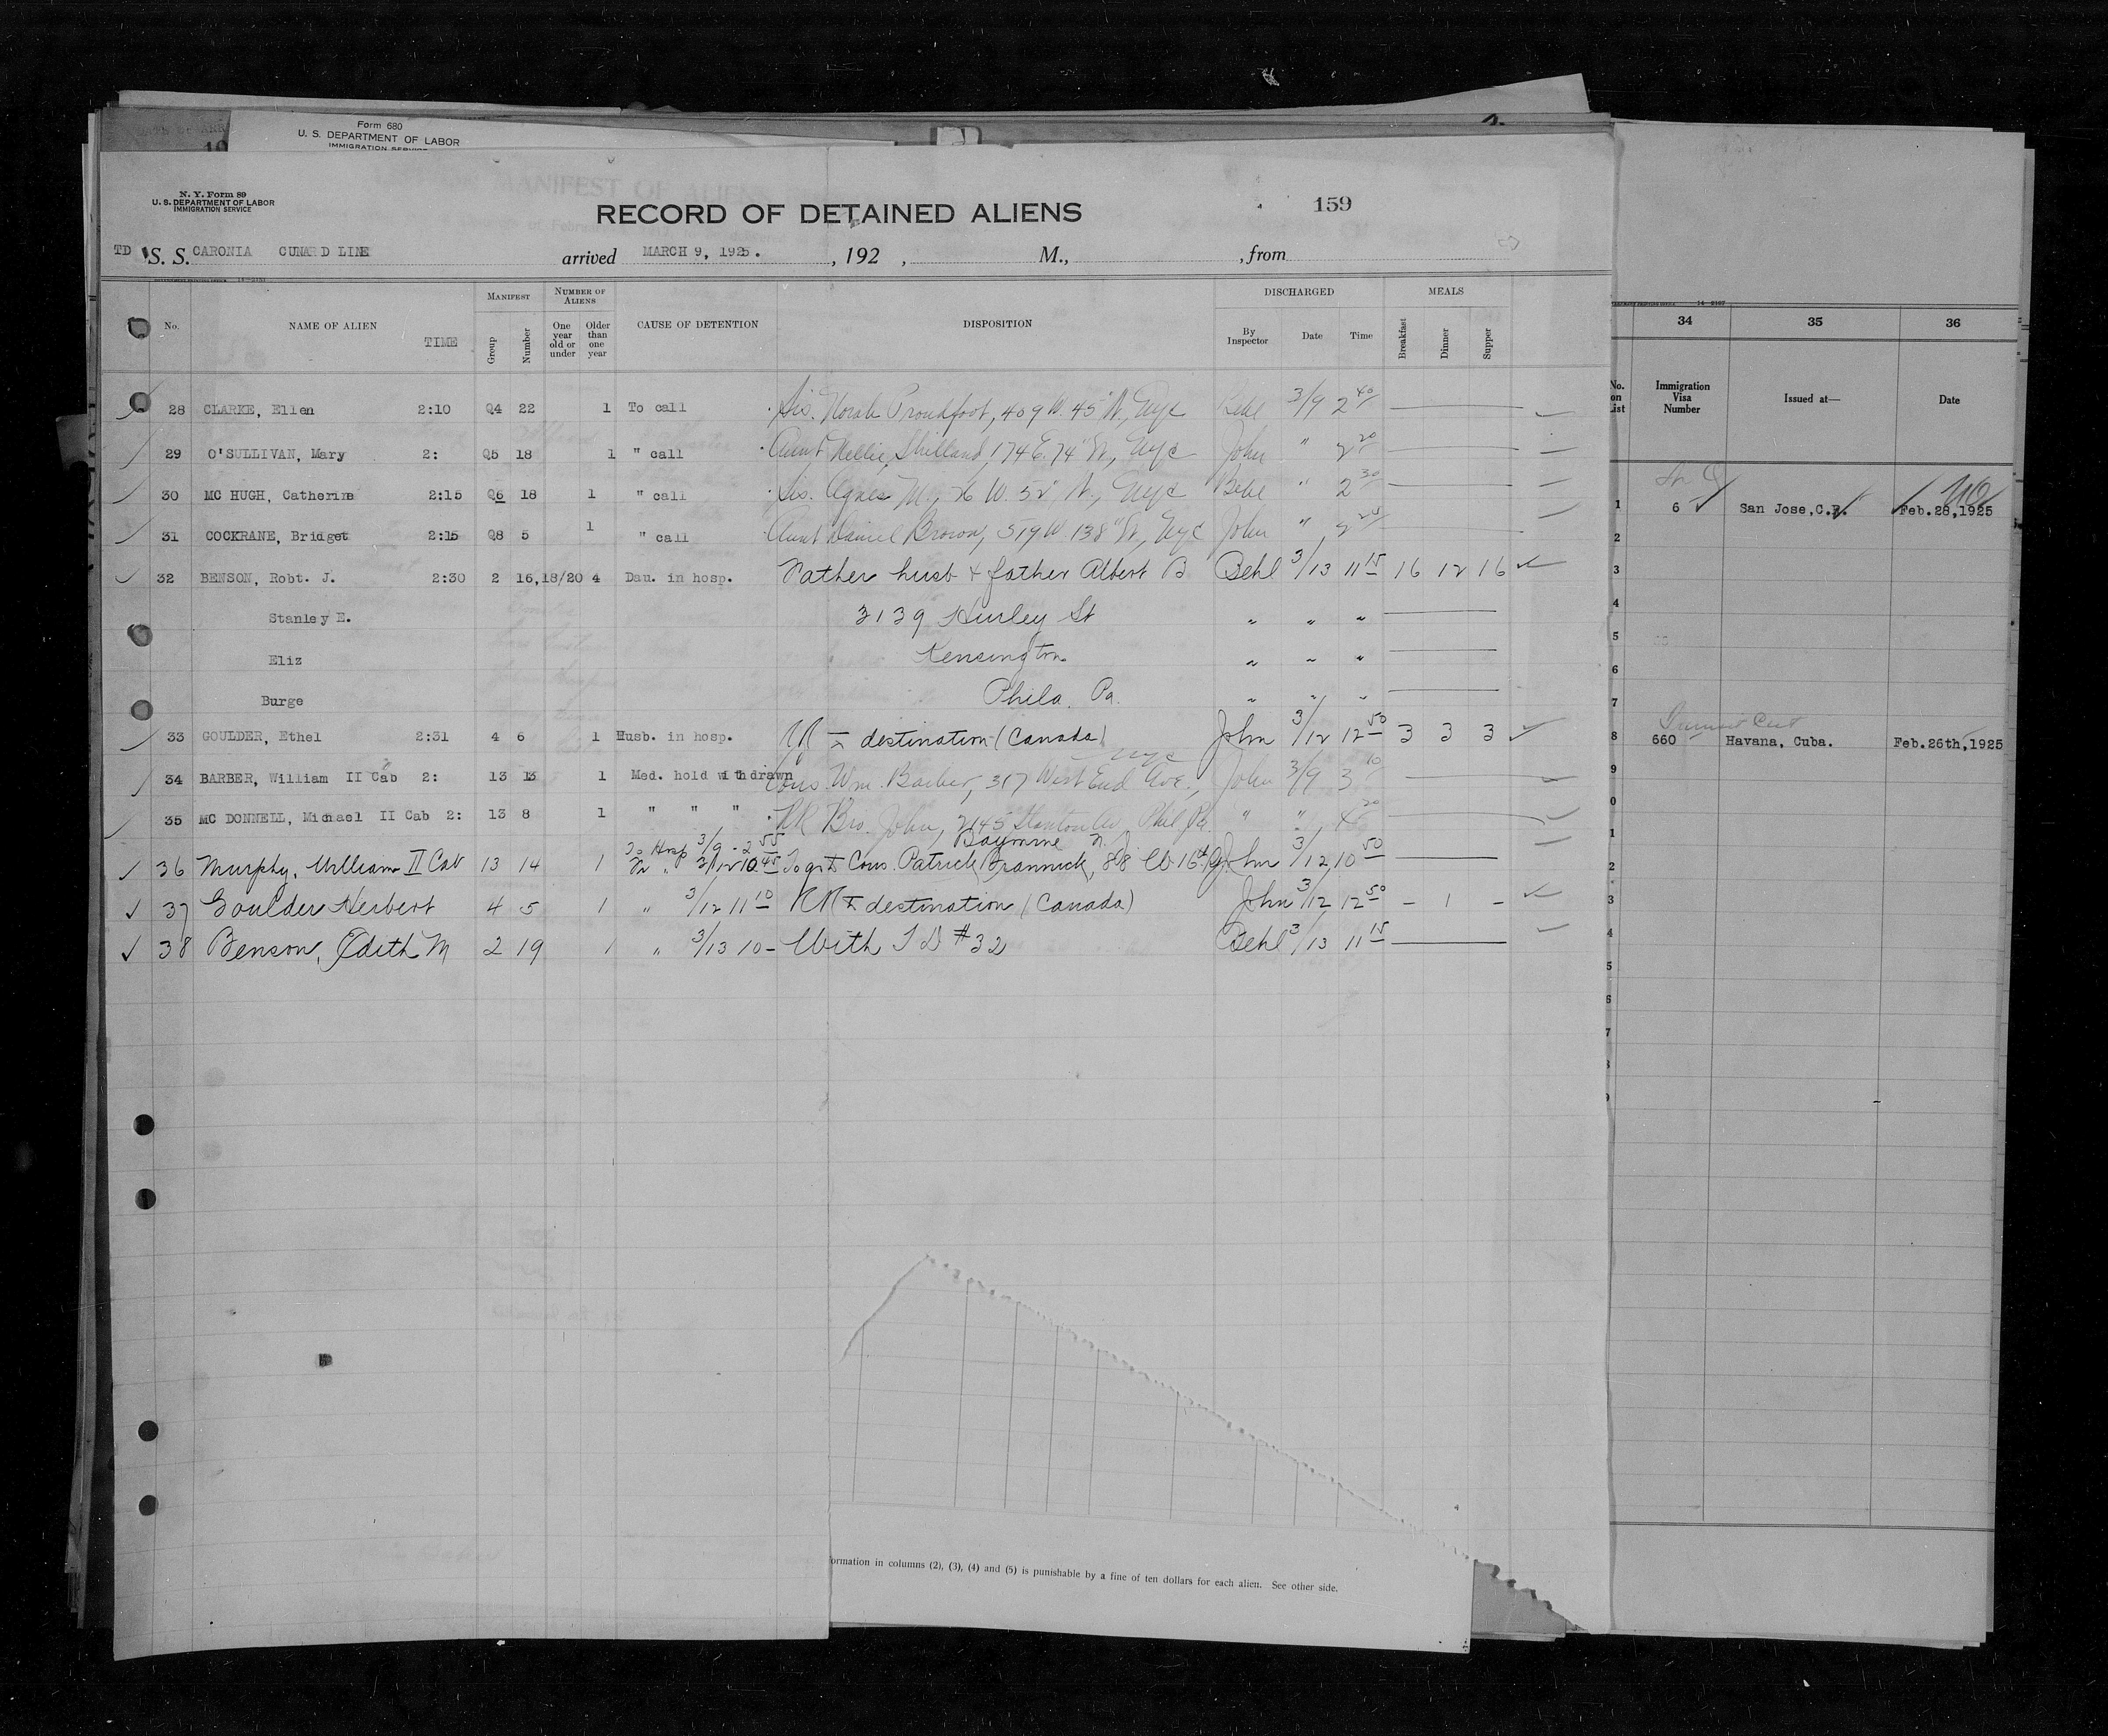 Form 680
U. S. DEPARTMENT OF LABOR
IMMIGRATION SERVICE
N. Y. Form 89
U. S. DEPARTMENT OF LABOR
IMMIGRATION SERVICE
RECORD OF DETAINED ALIENS
159
TD S. S. CARONIA CUNARD LINE arrived MARCH 9, 1925. , 192 , M., , from
No. NAME OF ALIEN TIME MANIFEST Group Number NUMBER OF ALIENS One year old or under Older than one year CAUSE OF DETENTION DISPOSITION DISCHARGED By Inspector Date Time MEALS Breakfast Dinner Supper
28 CLARKE, Ellen 2:10 Q4 22 1 To call Sis. Norah Proudfoot, 409 W. 45" St, Nyc 3/9 2 40
29 O'SULLIVAN, Mary 2: Q5 18 1 " call Aunt Nellie Shilland, 174 E. 74" St, Nyc John " 2 20
30 MC HUGH, Catherine 2:15 Q6 18 1 " call Sis. Agnes M., 26 W. 52" St, Nyc Behl " 2 30
31 COCKRANE, Bridget 2:15 Q8 5 1 " call Aunt Daniel Brown, 519 W. 138" St, Nyc John " 2 25
32 BENSON, Robt. J. 2:30 2 16,18/20 4 Dau. in hosp. Father husb & father Albert B Behl 3/13 11 15 16 12 16
Stanley E. 3139 Hurley St " " "
Eliz Kensington " " "
Burge Phila. Pa. " " "
33 GOULDER, Ethel 2:31 4 6 1 Husb. in hosp. RR to destination (Canada) John 3/12 12 50 3 3 3
34 BARBER, William II Cab 2: 13 13 1 Med. hold withdrawn Cous. Wm. Barber, 317 West End Ave., Nyc John 3/9 3 10
35 MC DONNELL, Michael II Cab 2: 13 8 1 " " " RR Bro. John, 2145 Stanton Av Phil Pa. " " 4 20
To Hosp 3/9 - 2 55 Bayonne N. J.
36 Murphy, William II Cab 13 14 1 Fr " 3/12 10 45 to Cous. Patrick Brannick, 88 W. 16th John 3/12 10 50
37 Goulder Herbert 4 5 1 " 3/12 11 10 RR to destination (Canada) John 3/12 12 50 - 1 -
38 Benson, Edith M 2 19 1 " 3/13 10 - With T D #32 Behl 3/13 11 15
formation in columns (2), (3), (4) and (5) is punishable by a fine of ten dollars for each alien. See other side.
14-2167
34 35 36
No. on List Immigration Visa Number Issued at— Date
1 6 San Jose,C.R. Feb.28,1925
2
3
4
5
6
7
8 660 Havana, Cuba. Feb.26th,1925
9
0
1
2
3
4
5
6
7